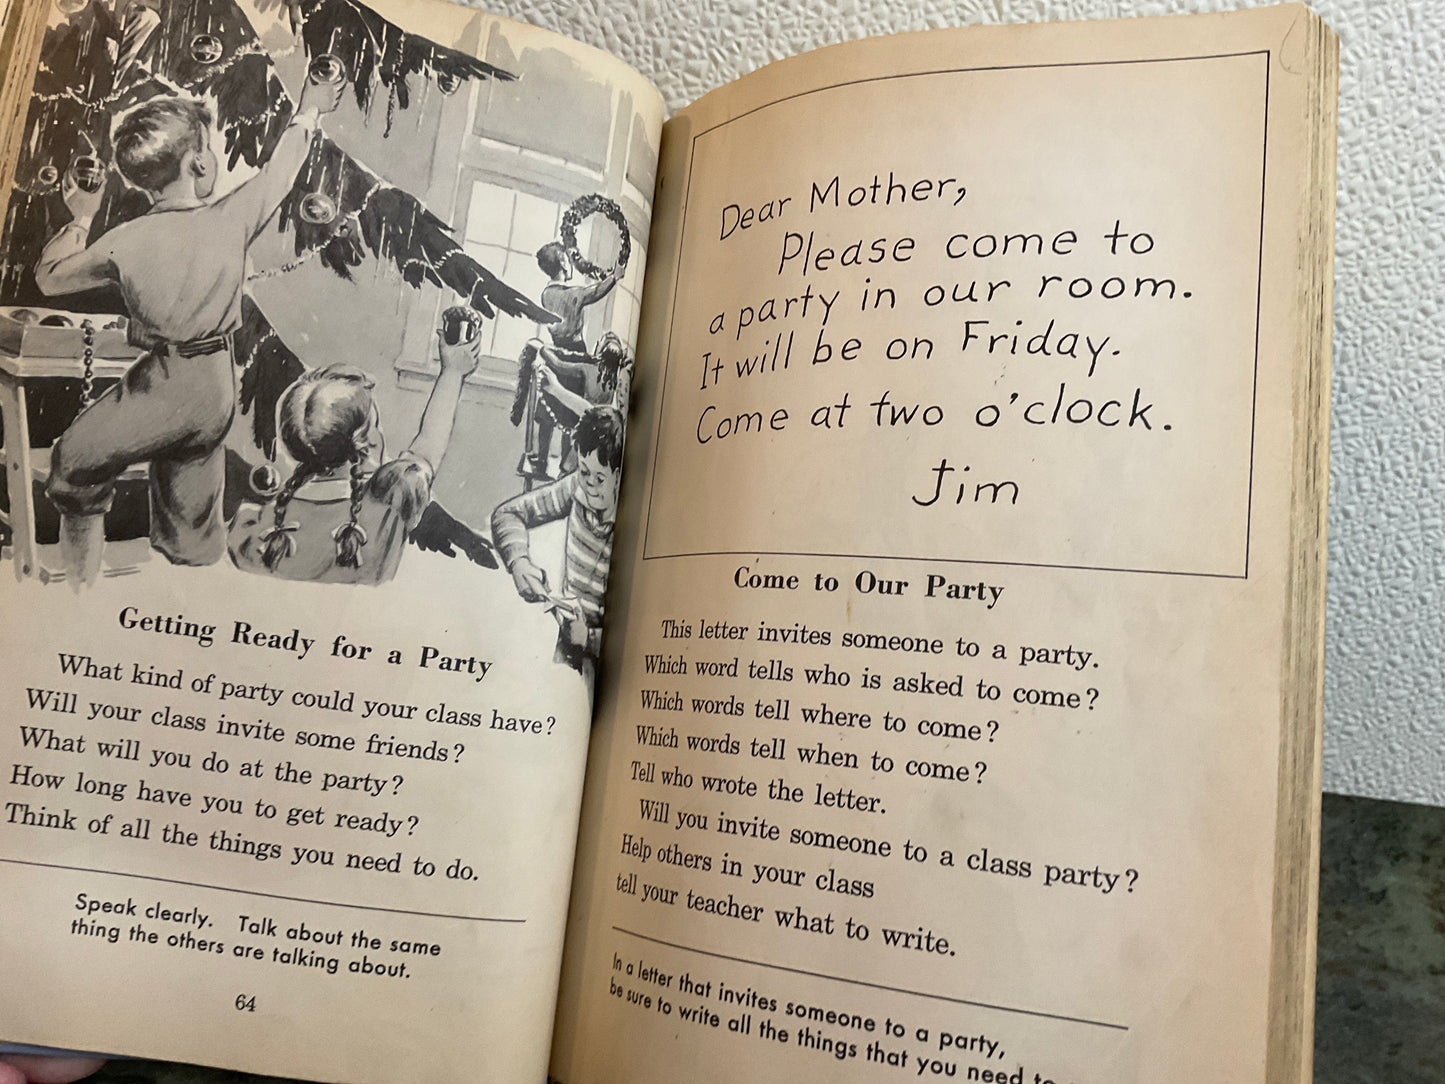 Getting Ready for a Party
What kind of party could your class have?
Will your class invite some friends?
What will you do at the party?
How long have you to get ready?
Think of all the things you need to do.
Speak clearly. Talk about the same
thing the others are talking about.
64
Dear Mother,
Please come to
a party in our room.
It will be on Friday.
Come at two o'clock.
Jim
Come to Our Party
This letter invites someone to a party.
Which word tells who is asked to come?
Which words tell where to come?
Which words tell when to come?
Tell who wrote the letter.
Will you invite someone to a class party?
Help others in your class
tell your teacher what to write.
In a letter that invites someone to a party,
be sure to write all the things that you need to